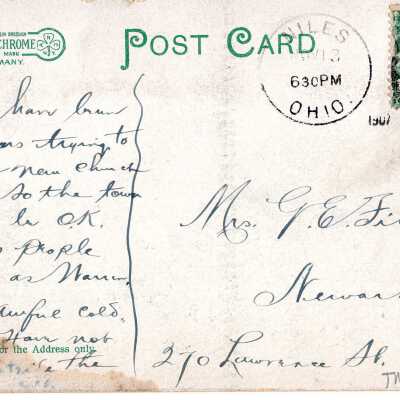 CHROME
MARK
MANY.
POST CARD
NILES
13
630PM
OHIO
1907
have been
trying to
new church
so the town
O.K.
people
as Warren.
awful cold.
have not
the
or the Address only.
Mrs. G. E. Fi
Newar
270 Lawrence St.